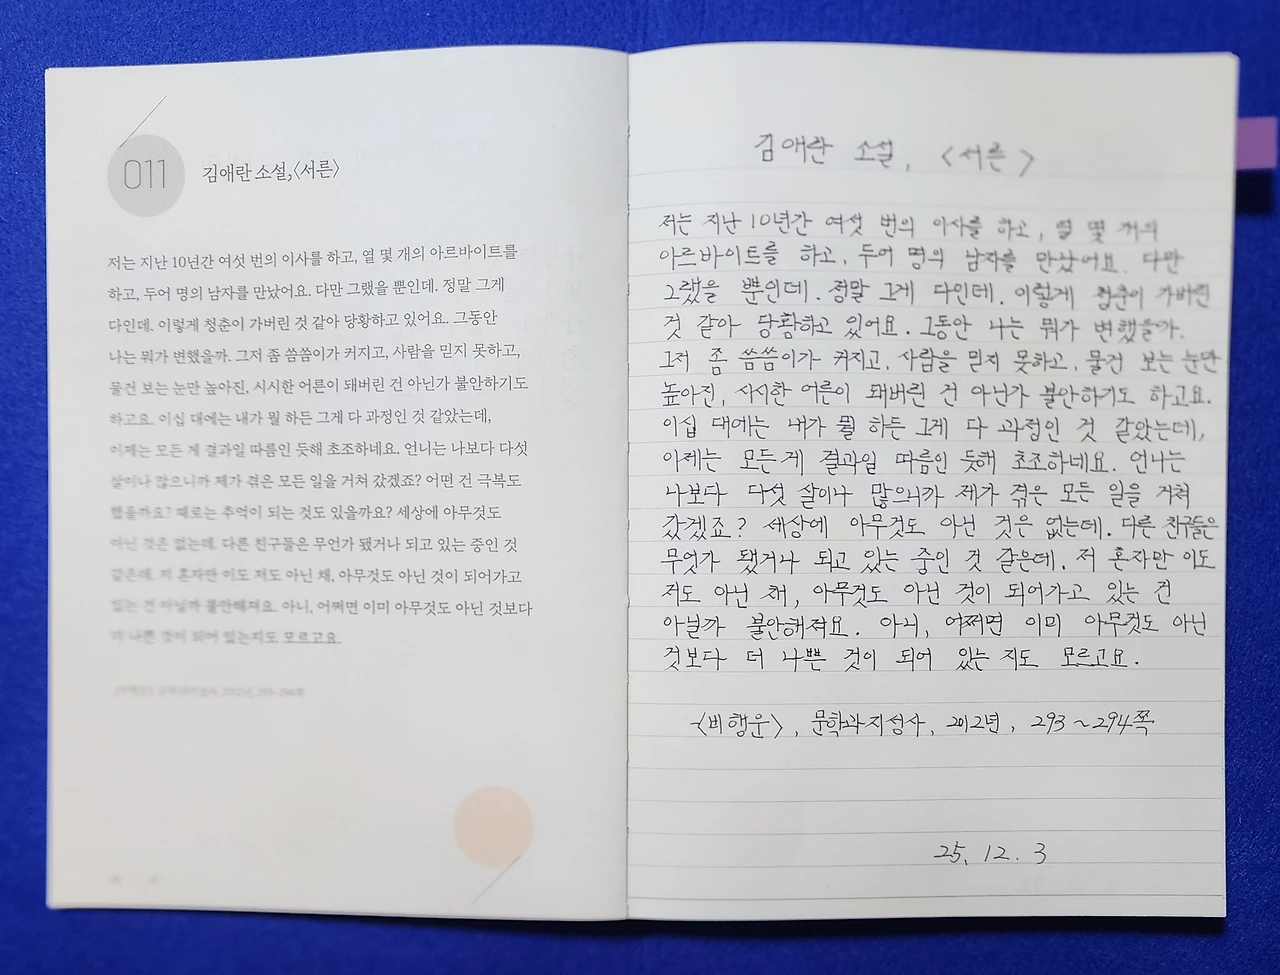 011
김애란 소설,〈서른〉
저는 지난 10년간 여섯 번의 이사를 하고, 열 몇 개의 아르바이트를
하고, 두어 명의 남자를 만났어요. 다만 그랬을 뿐인데. 정말 그게
다인데. 이렇게 청춘이 가버린 것 같아 당황하고 있어요. 그동안
나는 뭐가 변했을까. 그저 좀 씀씀이가 커지고, 사람을 믿지 못하고,
물건 보는 눈만 높아진, 시시한 어른이 돼버린 건 아닌가 불안하기도
하고요. 이십 대에는 내가 뭘 하든 그게 다 과정인 것 같았는데,
이제는 모든 게 결과일 따름인 듯해 초조하네요. 언니는 나보다 다섯
살이나 많으니까 제가 겪은 모든 일을 거쳐 갔겠죠? 어떤 건 극복도
했을까요? 때로는 추억이 되는 것도 있을까요? 세상에 아무것도
아닌 것은 없는데. 다른 친구들은 무언가 됐거나 되고 있는 중인 것
같은데. 저 혼자만 이도 저도 아닌 채, 아무것도 아닌 것이 되어가고
있는 건 아닐까 불안해져요. 아니, 어쩌면 이미 아무것도 아닌 것보다
더 나쁜 것이 되어 있는지도 모르고요.
김애란 소설, 〈서른〉
저는 지난 10년간 여섯 번의 이사를 하고, 열 몇 개의
아르바이트를 하고, 두어 명의 남자를 만났어요. 다만
그랬을 뿐인데. 정말 그게 다인데. 이렇게 청춘이 가버린
것 같아 당황하고 있어요. 그동안 나는 뭐가 변했을까.
그저 좀 씀씀이가 커지고, 사람을 믿지 못하고, 물건 보는 눈만
높아진, 시시한 어른이 돼버린 건 아닌가 불안하기도 하고요.
이십 대에는 내가 뭘 하든 그게 다 과정인 것 같았는데,
이제는 모든 게 결과일 따름인 듯해 초조하네요. 언니는
나보다 다섯 살이나 많으니까 제가 겪은 모든 일을 거쳐
갔겠죠? 세상에 아무것도 아닌 것은 없는데. 다른 친구들은
무엇가 됐거나 되고 있는 중인 것 같은데. 저 혼자만 이도
저도 아닌 채, 아무것도 아닌 것이 되어가고 있는 건
아닐까 불안해져요. 아니, 어쩌면 이미 아무것도 아닌
것보다 더 나쁜 것이 되어 있는지도 모르고요.
〈비행운〉, 문학과지성사, 2012년, 293~294쪽
25. 12. 3